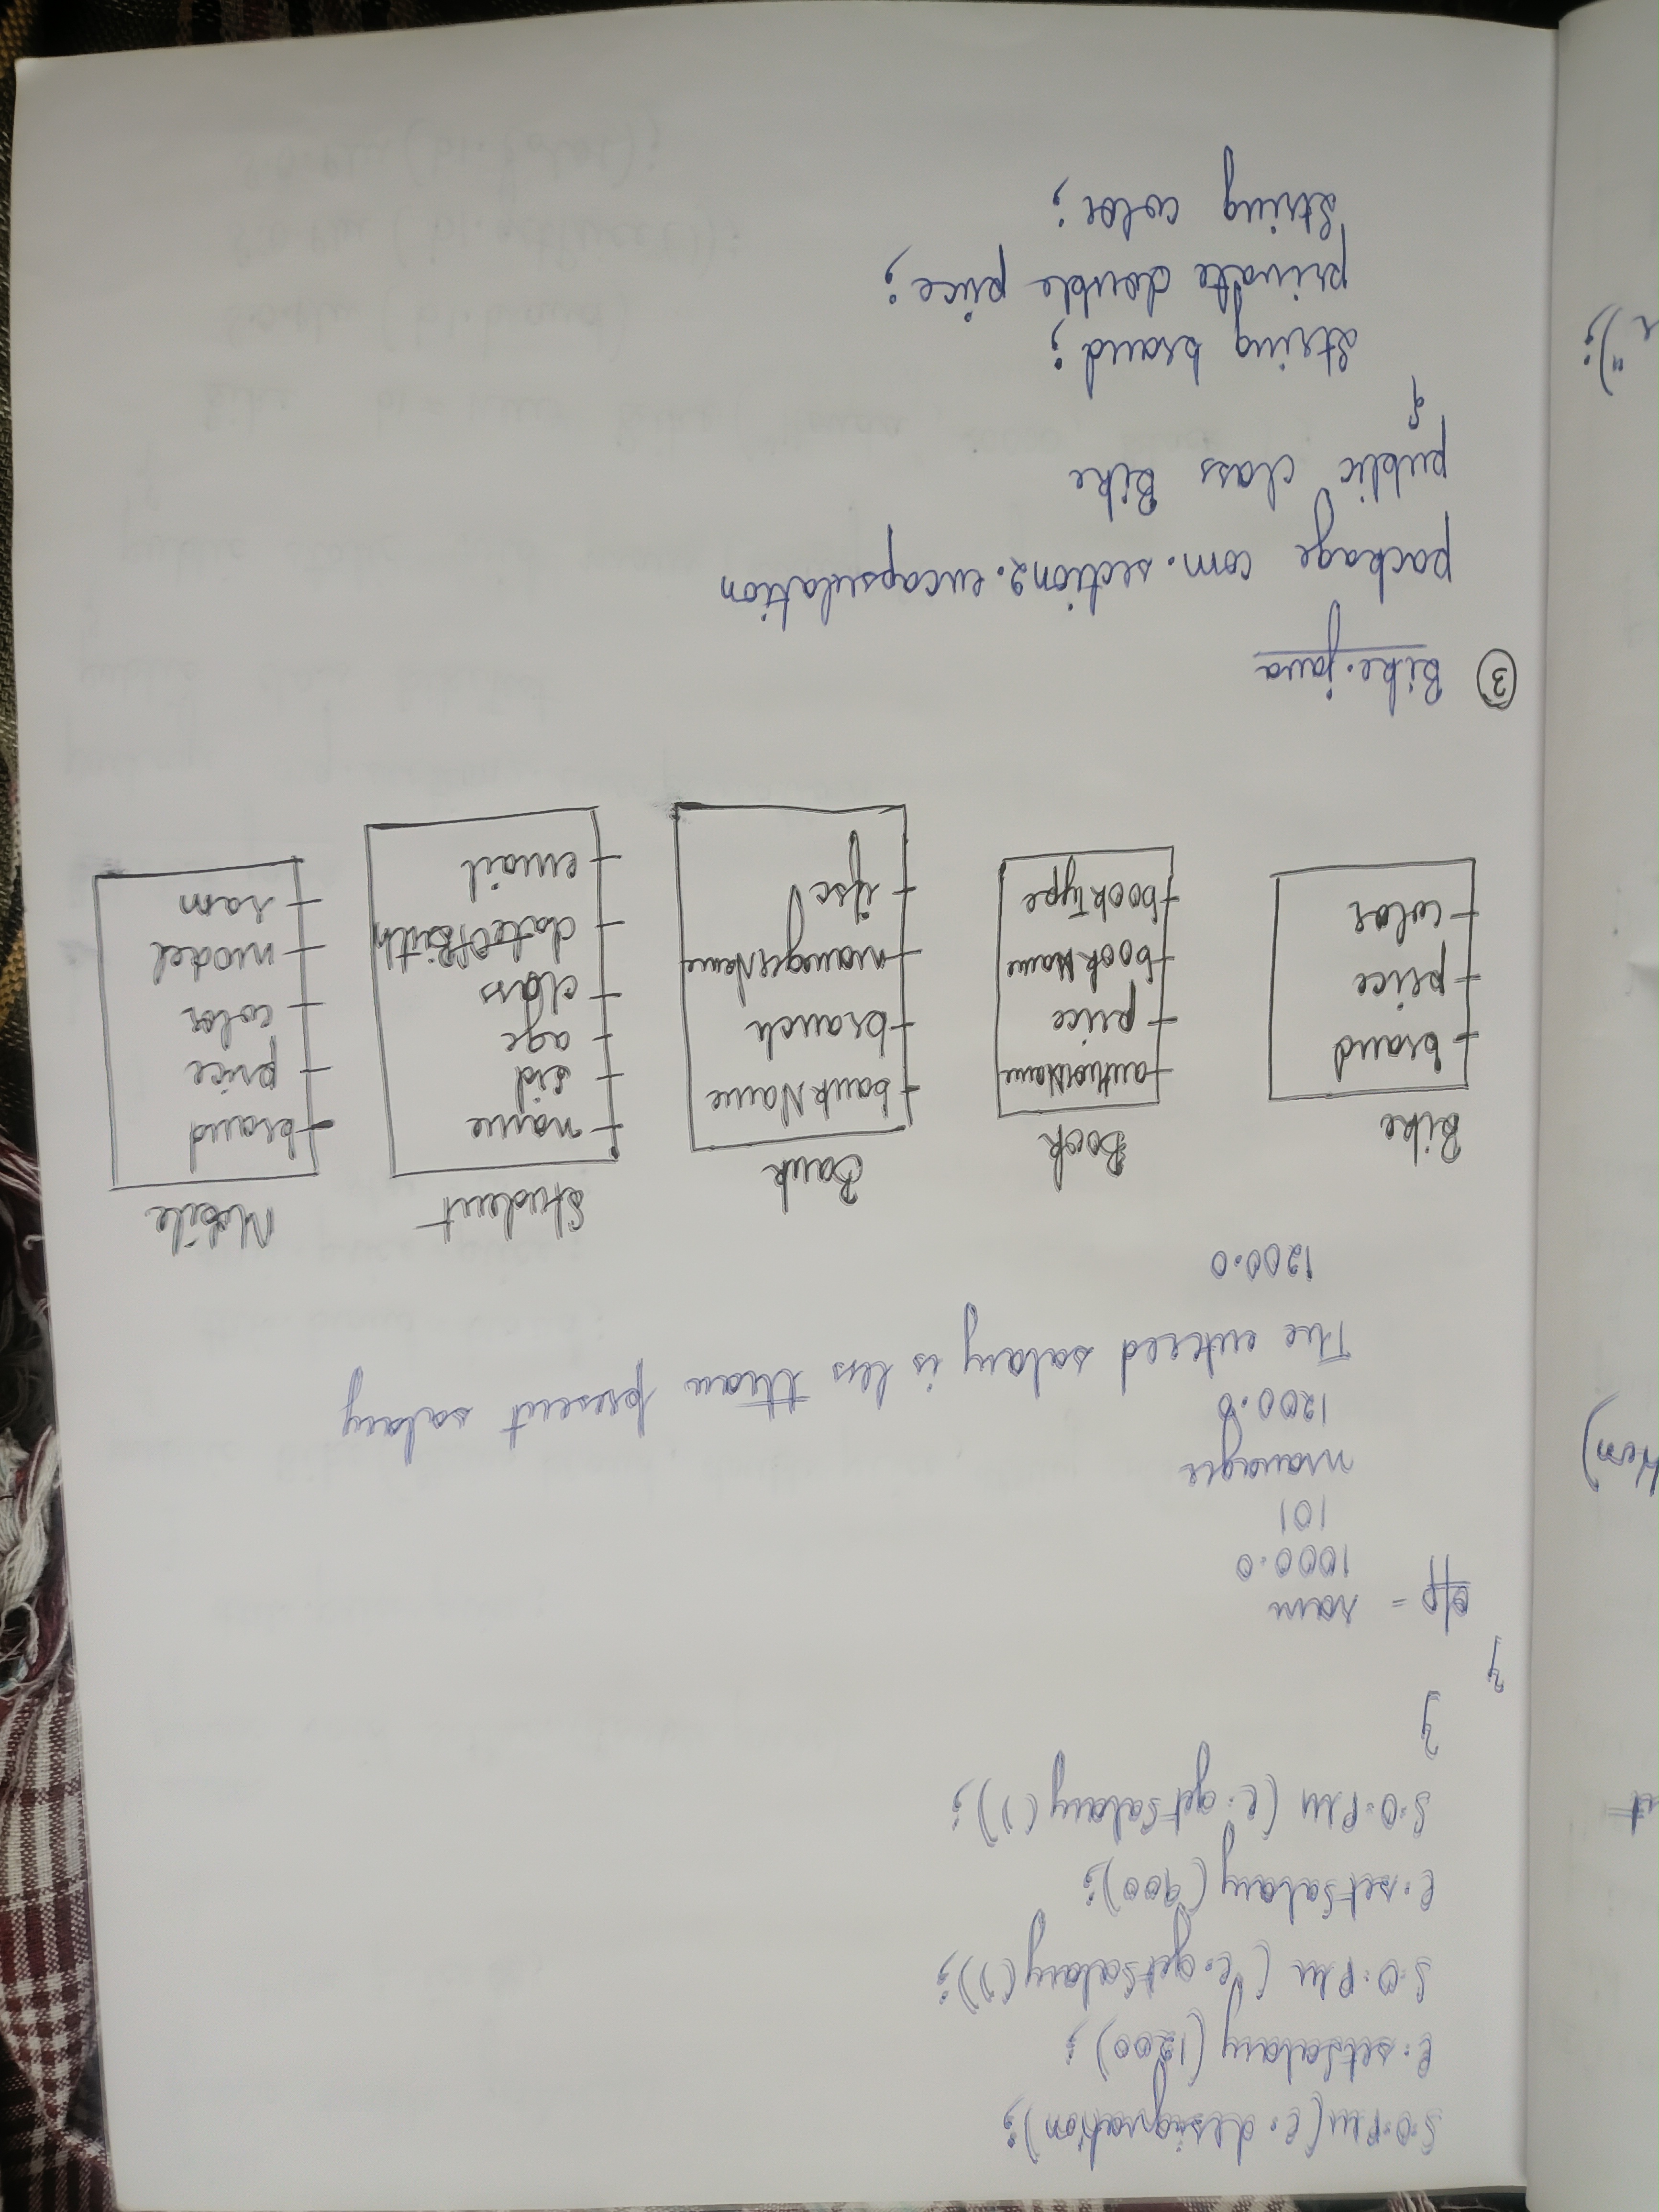 S.O.Pln(e.designation);
e.setSalary(1200);
S.O.Pln (e.getSalary());
e.setSalary(900);
S.O.Pln (e.getSalary());
}
}
o/p = ram
1000.0
101
manager
1200.0
The entered salary is less than present salary
1200.0
Bike
brand
price
color
Book
authorName
price
bookName
bookType
Bank
bankName
branch
managerName
ifsc
Student
name
sid
age
class
dateOfBirth
email
Mobile
brand
price
color
model
ram
3 Bike.java
package com.section2.encapsulation
public class Bike
{
String brand;
private double price;
String color;